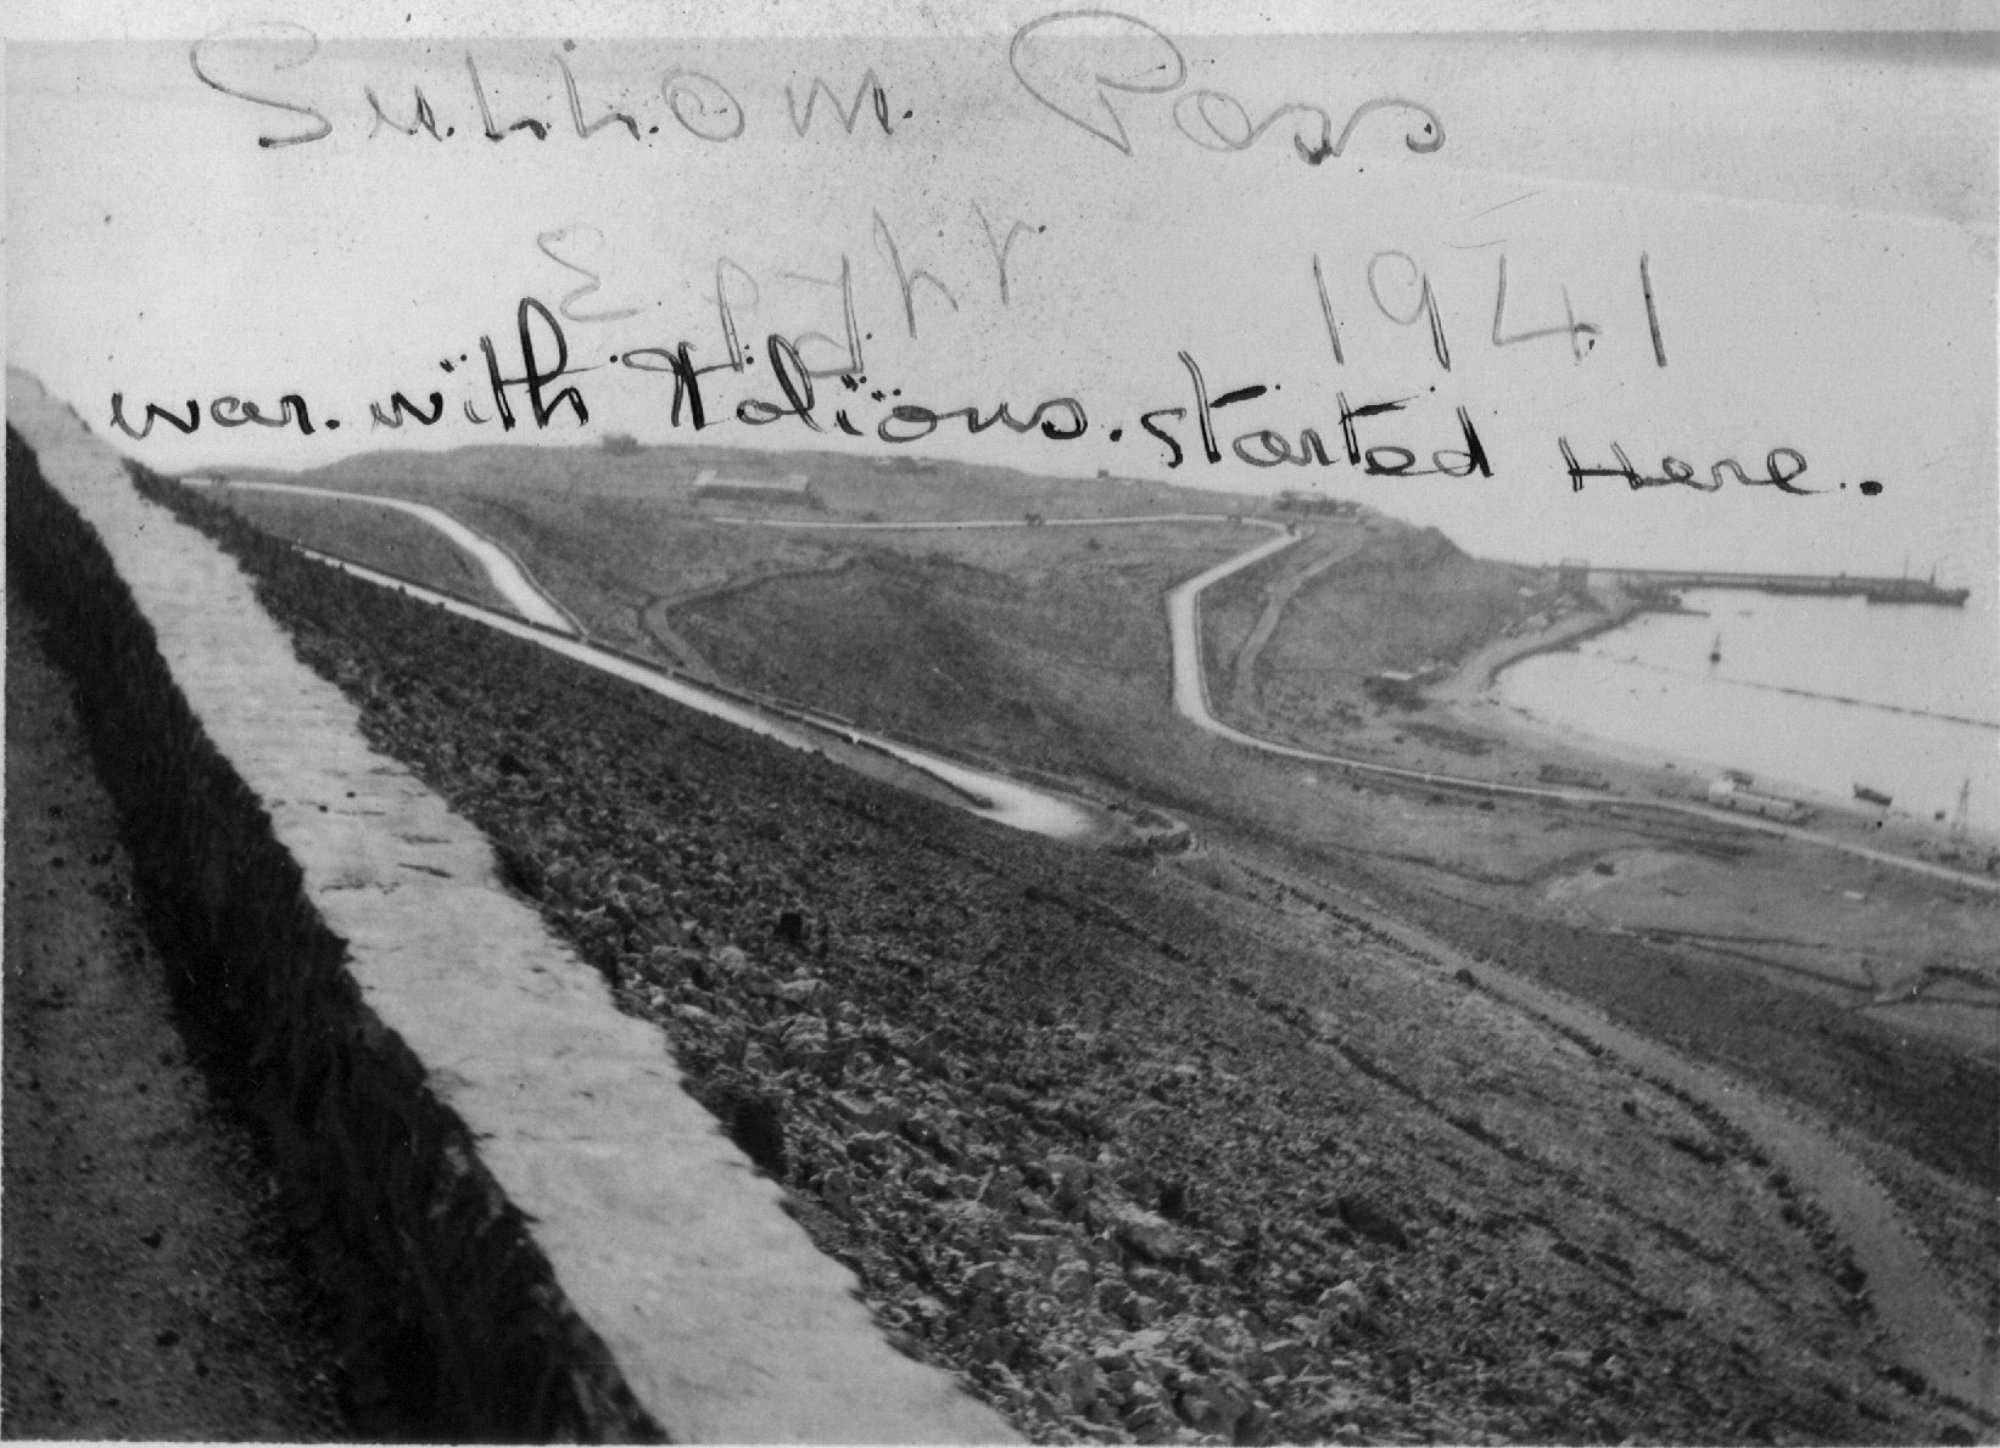 Sullom Pass
Egypt 1941
war. with Italians. started Here.